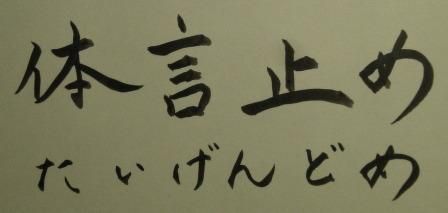 体言止め
たいげんどめ